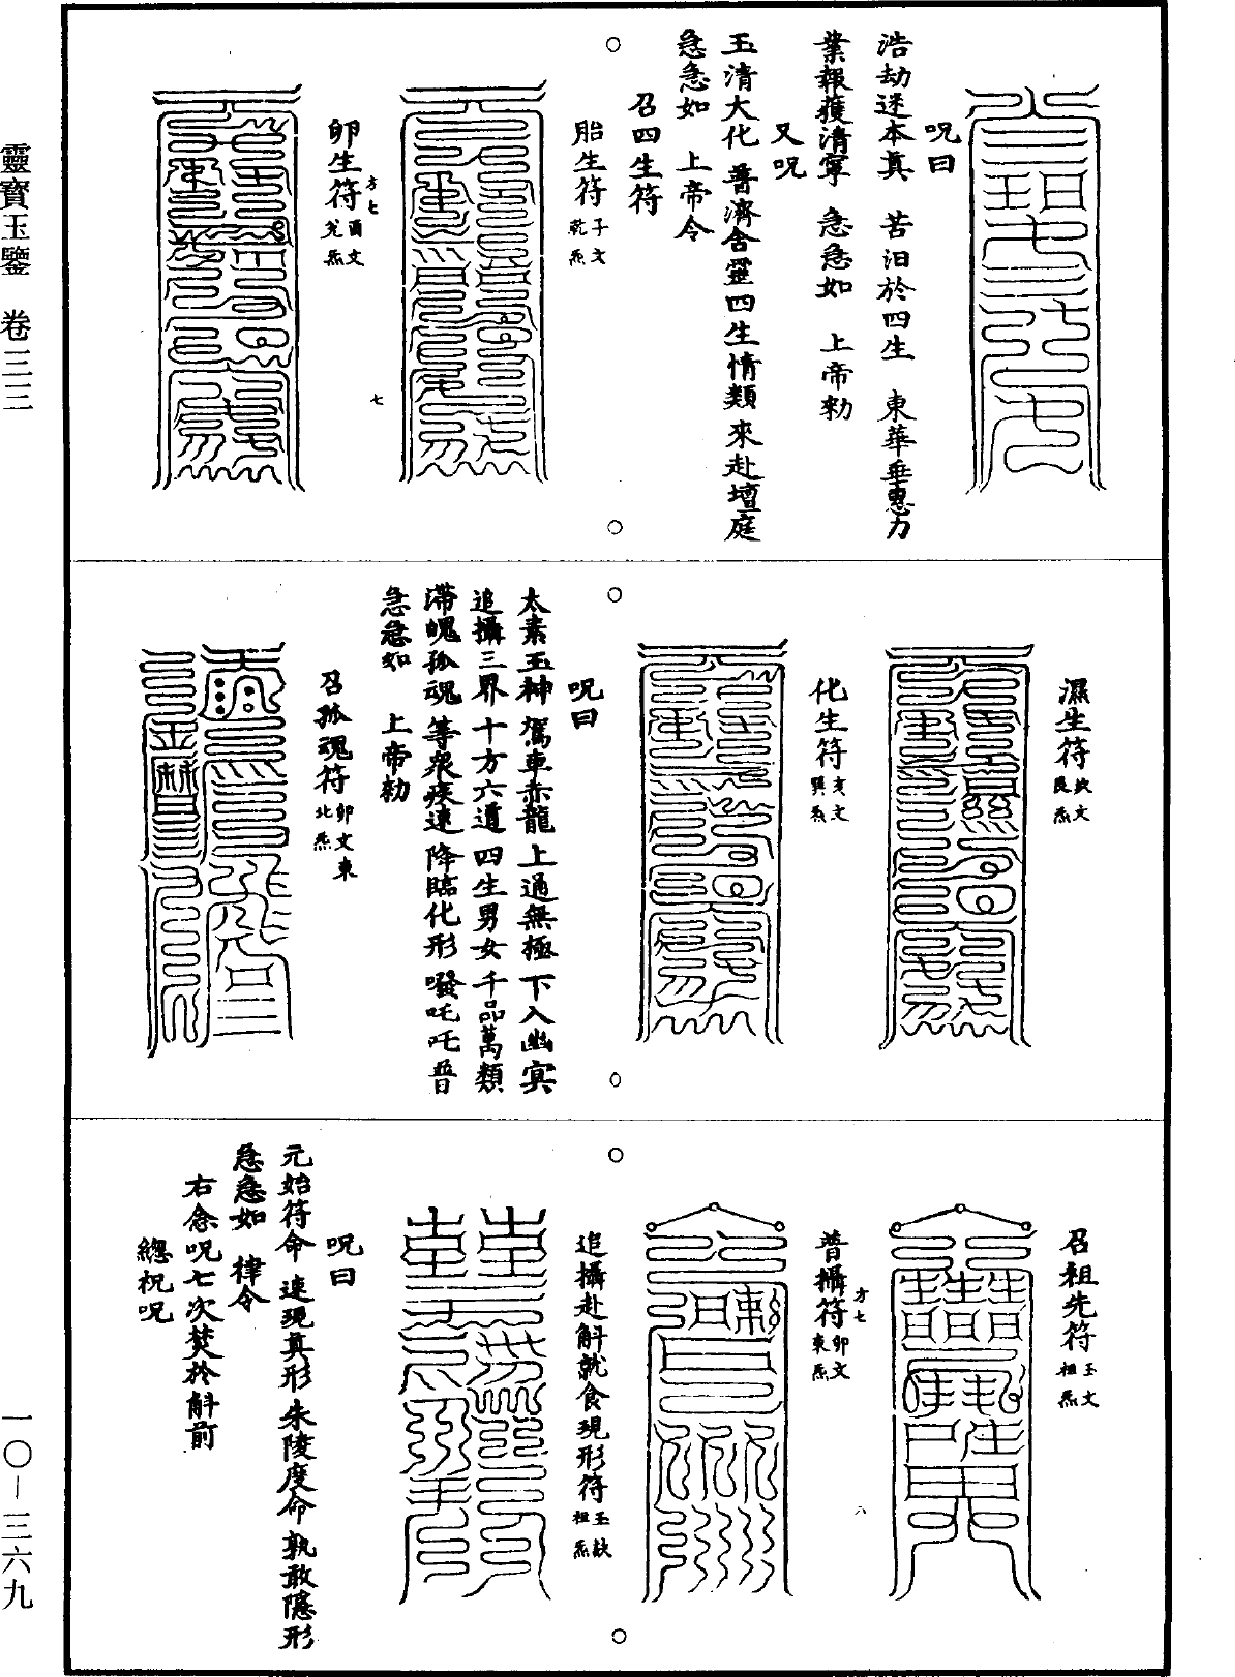 呪曰
浩劫迷本真　苦汩於四生　東華垂惠力
業報獲清寧　急急如　上帝勅
又呪
玉清大化　普濟含靈四生情類來赴壇庭
急急如　上帝令
召四生符
胎生符子文乾炁
卵生符酉文兌炁
方七
七
濕生符
化生符亥文巽炁
呪曰
太素玉神駕車赤龍上通無極下入幽冥
追攝三界十方六道四生男女千品萬類
滯魄孤魂等眾疾速降臨化形㗶吒吒普
急急如　上帝勅
召孤魂符卯文東北炁
召祖先符玉文祖炁
普攝符卯文東炁
方七
八
追攝赴斛就食現形符
呪曰
元始符命速現真形朱陵度命孰敢隱形
急急如　律令
右念呪七次焚於斛前
總祝呪
靈寶玉鑒　卷三三
一〇—三六九